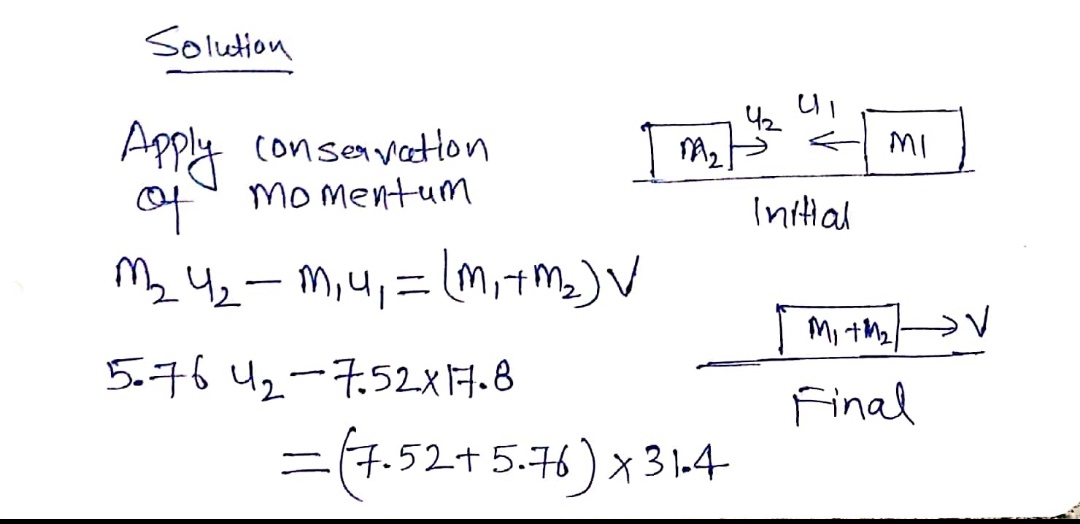 Solution
Apply conservation
of momentum
m₂ u₂ – m₁u₁ = (m₁+m₂) V
5.76 u₂ – 7.52x17.8
= (7.52+5.76) x 31.4
m₂ u₂ u₁ m1
Initial
m₁+m₂ V
Final